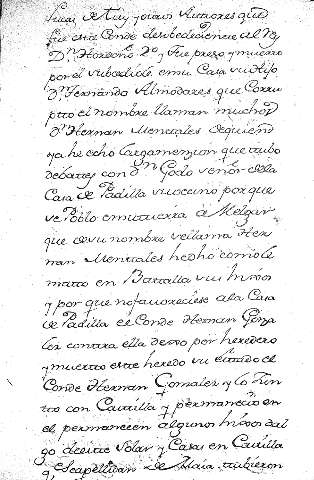 de Tuy y otros Autores que
fue este Conde desobediente al Rey
Dn. Hordoño 2o. y fue preso y muerto
por el subcediole en su Casa su Hijo
Dn. Fernando Almodares que
el nombre llaman muchos
Dn. Hernan Mentales de quien
ya he echo larga menzion que tubo
debattes con Dn. Godo señor de la
Casa de Padilla su vecino por que
se Poblo en su tierra a Melgar
que de su nombre se llama Her
nan Mentales hedho
mato en Battalla sus Hijos
y por que no favoreciese a la Casa
de Padilla el Conde Hernan Gonza
lez contra ella dexo por heredero
y muerto este heredo su Estado el
Conde Hernan Gonzalez y lo Jun
tto con Casttilla y permanecio en
el permanecien algunos Hijos dal
go de este Solar y Casas en Casttilla
y Alaia tubieron